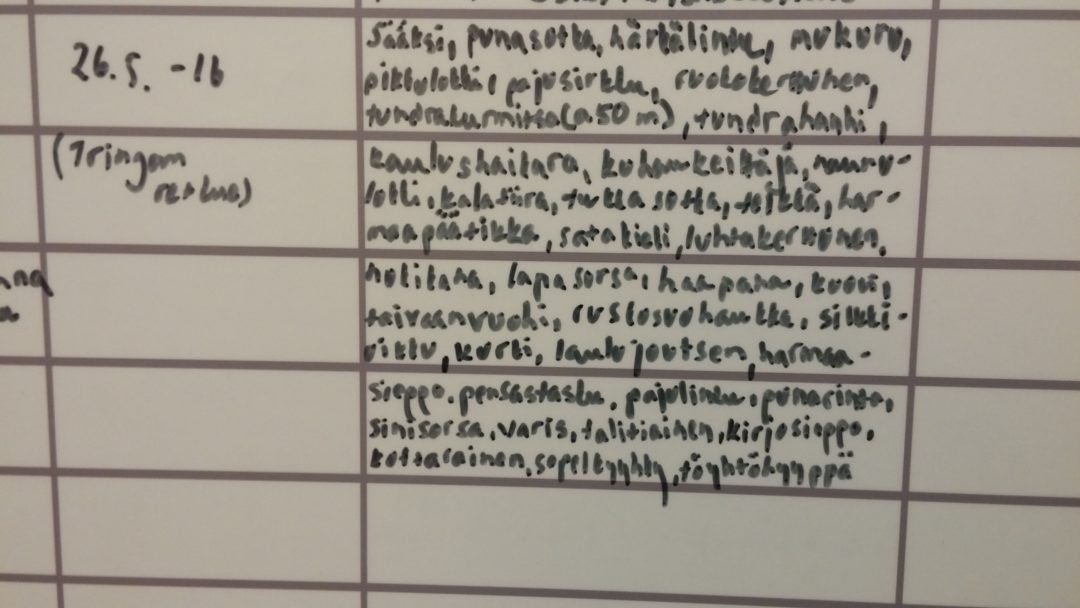 26.5. -16
(Tringam
sääksi, punasotka, härkälintu, nukuru,
pikkulokki, pajusirkku, ruokokerttunen,
tundrakurmitsa (n.50 m), tundrahanhi,
kaulushaikara, kuhankeittäjä, nauru-
lokki, kalatiira, tukkasotka, tejkkä, har-
maapäätikka, satakieli, luhtakerttunen,
nokikana, lapasorsa, haapana, kuovi,
taivaanvuohi, ruskosuohaukka, silkki-
uikku, kurki, laulujoutsen, harmaa-
sieppo, pensastasku, pajulintu, punarinta,
sinisorsa, varis, talitiainen, kirjosieppo,
kottarainen, sepelkyyhky, töyhtöhyyppä